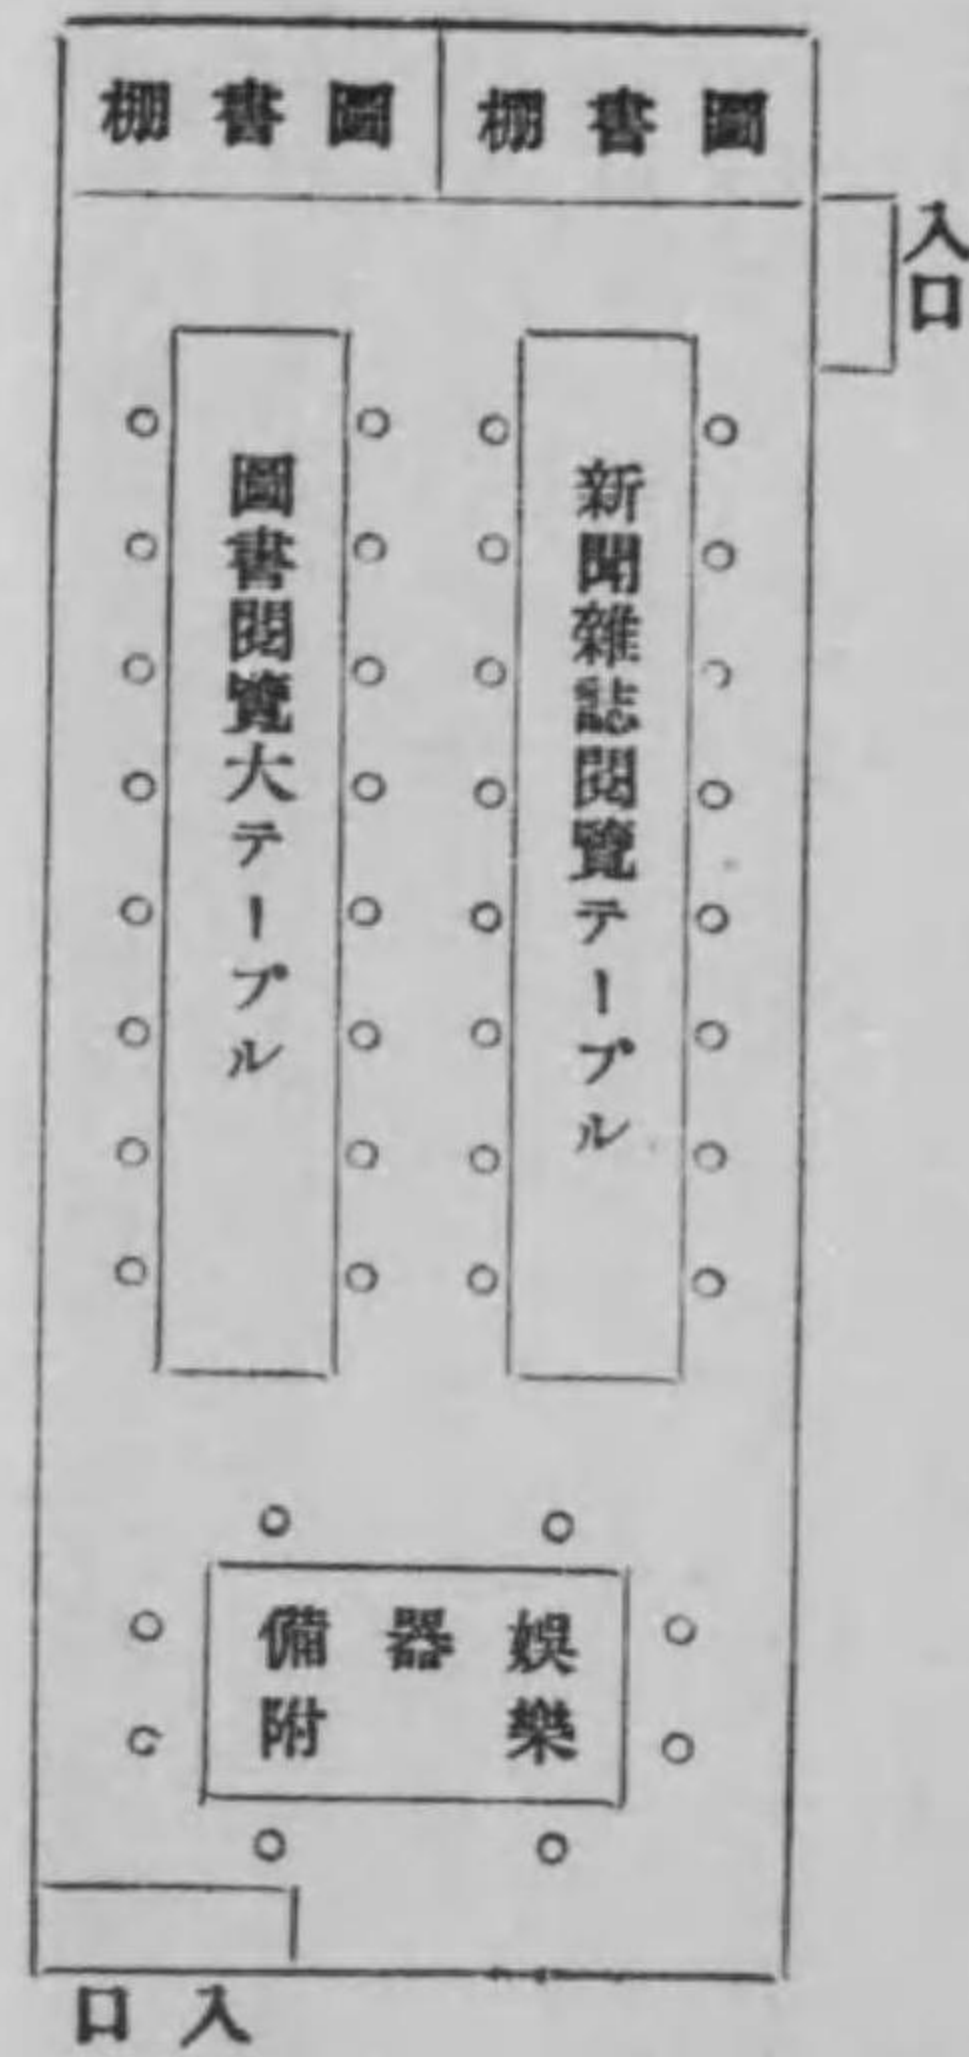 圖書棚
圖書棚
入口
新聞雜誌閱覽テーブル
圖書閱覽大テーブル
娛樂
器
備附
入口